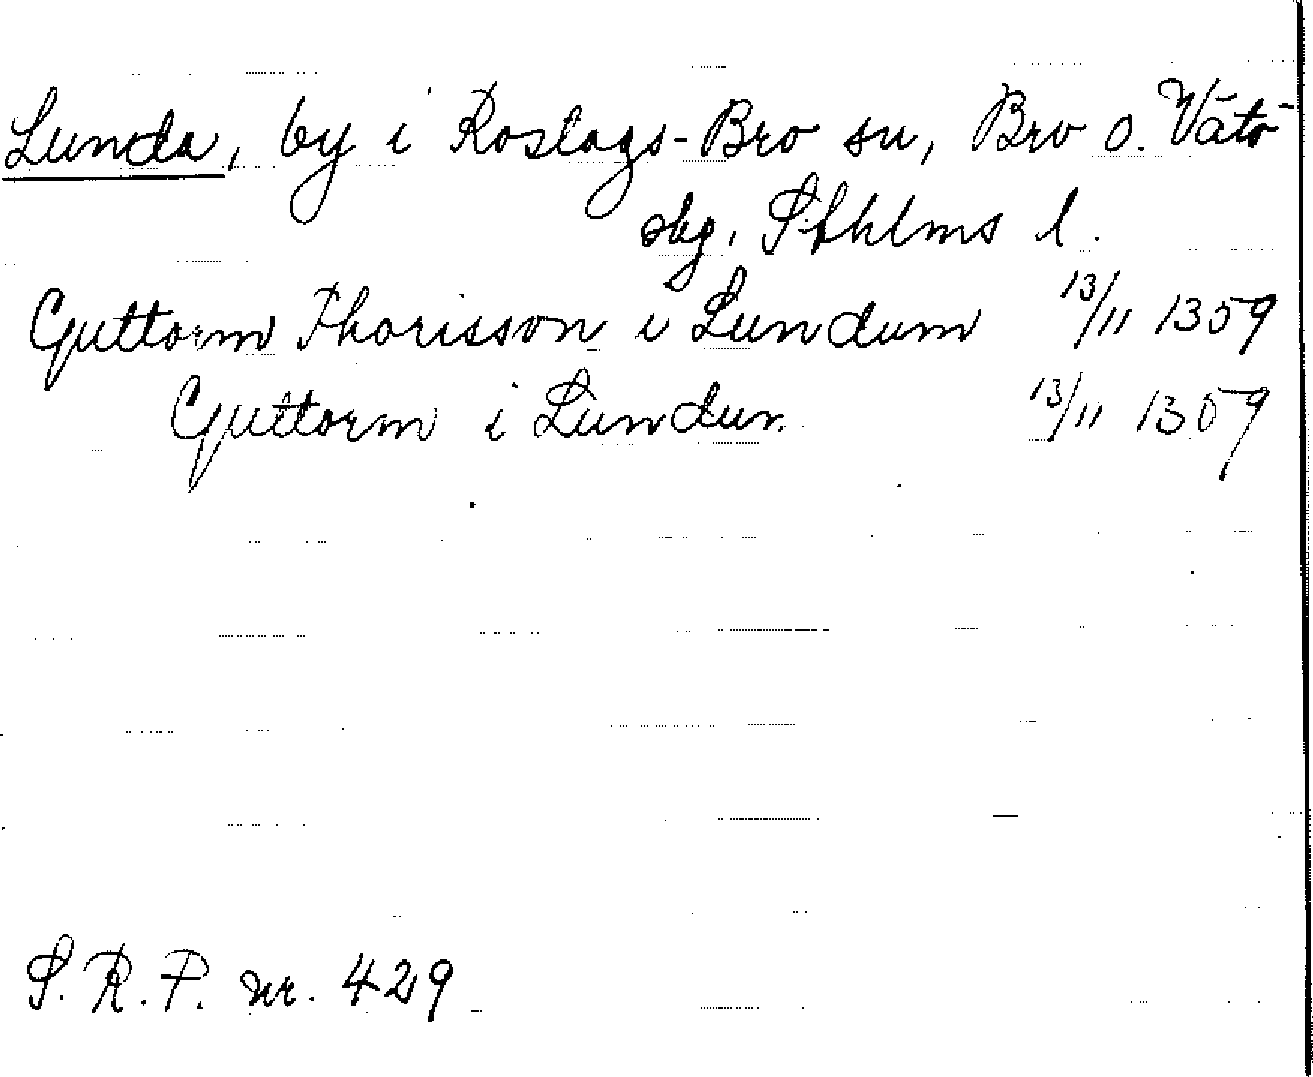 Lunda, by i Roslags-Bro sn, Bro o. Vätö
skg, Sthlms l.
Guttorm Thorisson i Lundum 13/11 1359
Guttorm i Lundum 13/11 1359
S.R.P. nr. 429